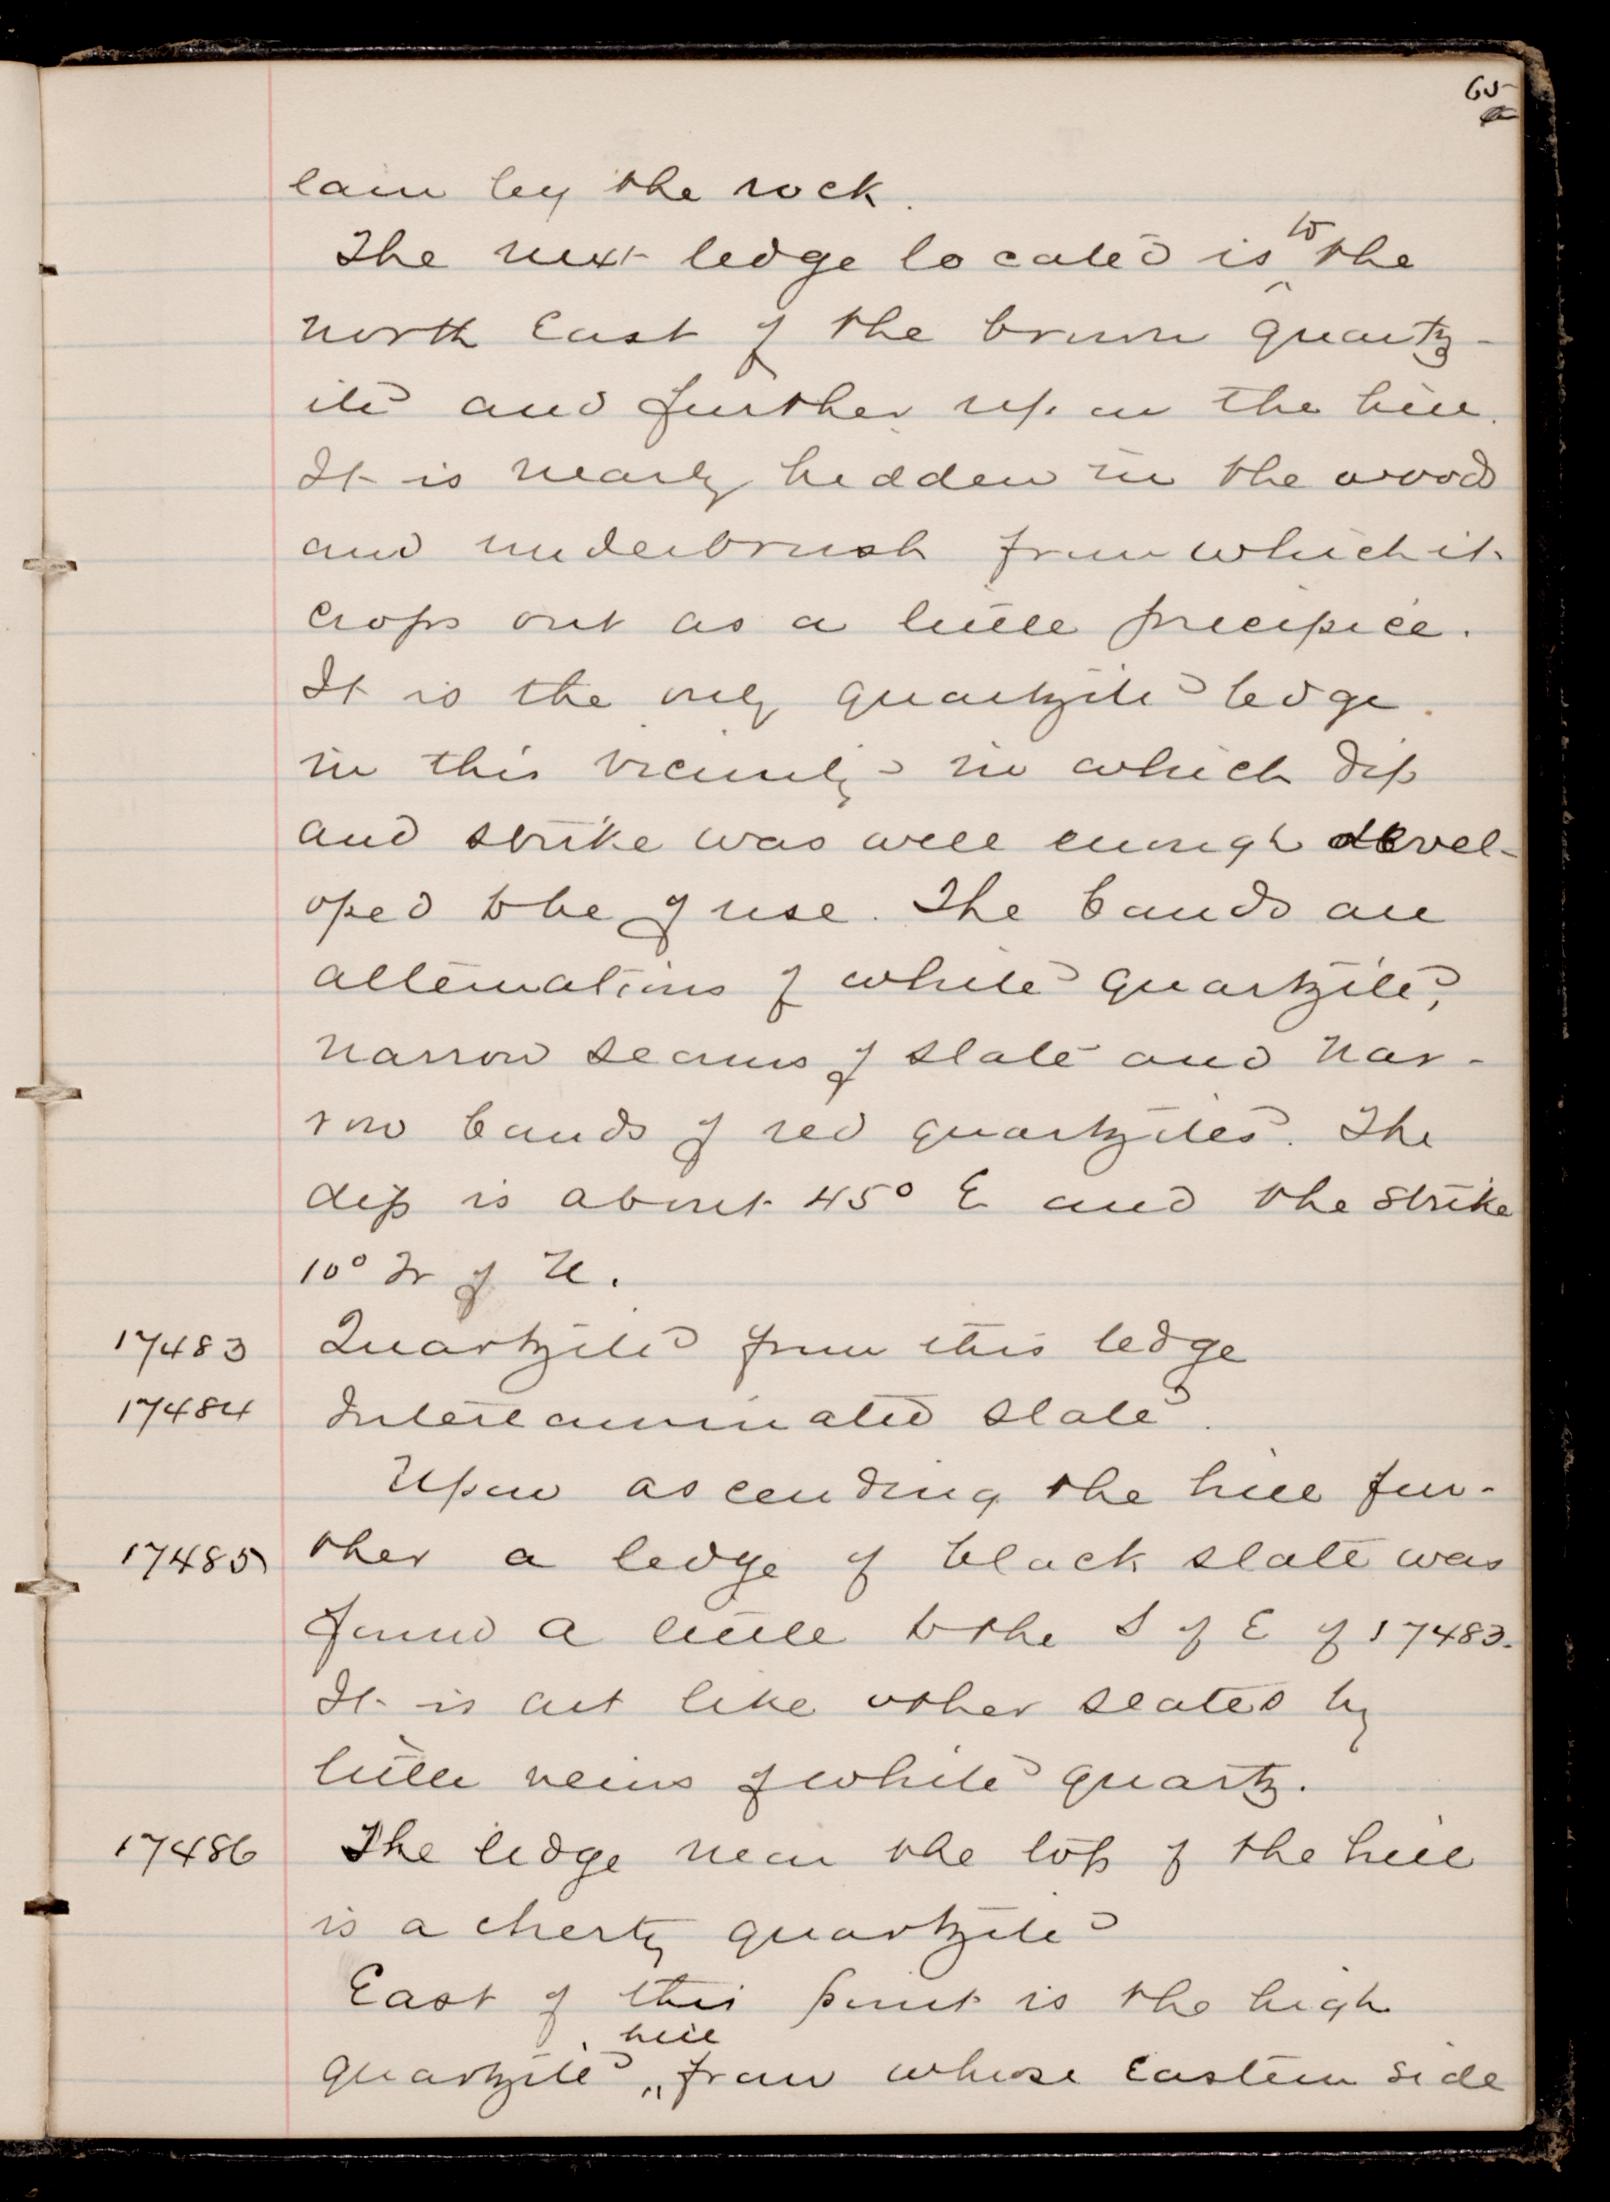 65
lain by the rock.
The next ledge located is to the
north East of the brown quartz-
ite and further up on the hill.
It is nearly hidden in the woods
and underbrush from which it
crops out as a little precipice.
It is the only quartzite ledge
in this vicinity in which dip
and strike was well enough devel-
oped to be of use. The bands are
alternations of white quartzite,
narrow seams of slate and nar-
row bands of red quartzites. The
dip is about 45° E and the strike
10° W of N.
17483 Quartzite from this ledge
17484 Interlaminated slate.
Upon ascending the hill fur-
17485 ther a ledge of black slate was
found a little to the S of E of 17483.
It is cut like other slates by
little veins of white quartz.
17486 The ledge near the top of the hill
is a cherty quartzite
East of this point is the high
quartzite hill from whose Eastern side